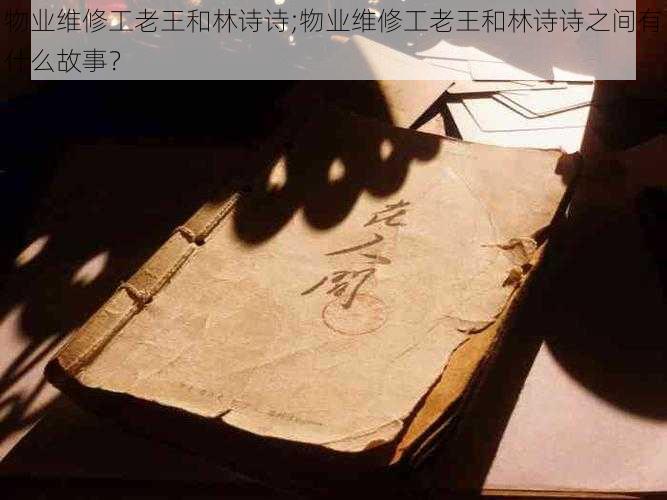 物业维修工老王和林诗诗;物业维修工老王和林诗诗之间有
什么故事？
在人间